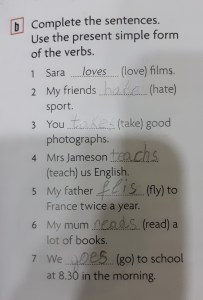 b Complete the sentences.
Use the present simple form
of the verbs.
1 Sara loves (love) films.
2 My friends hate (hate)
sport.
3 You takes (take) good
photographs.
4 Mrs Jameson teachs
(teach) us English.
5 My father flis (fly) to
France twice a year.
6 My mum reads (read) a
lot of books.
7 We goes (go) to school
at 8.30 in the morning.